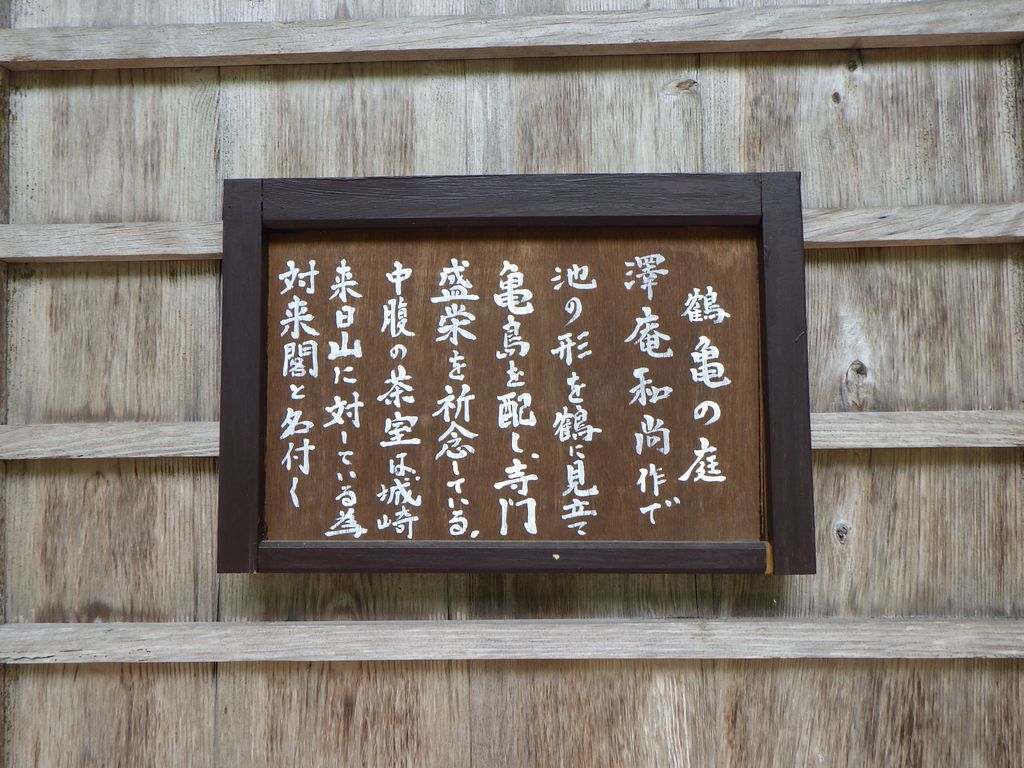 鶴亀の庭
澤庵和尚作で
池の形を鶴に見立て
亀島を配し、寺門
盛栄を祈念している。
中腹の茶室は、城崎
来日山に対している為
対来閣と名付く